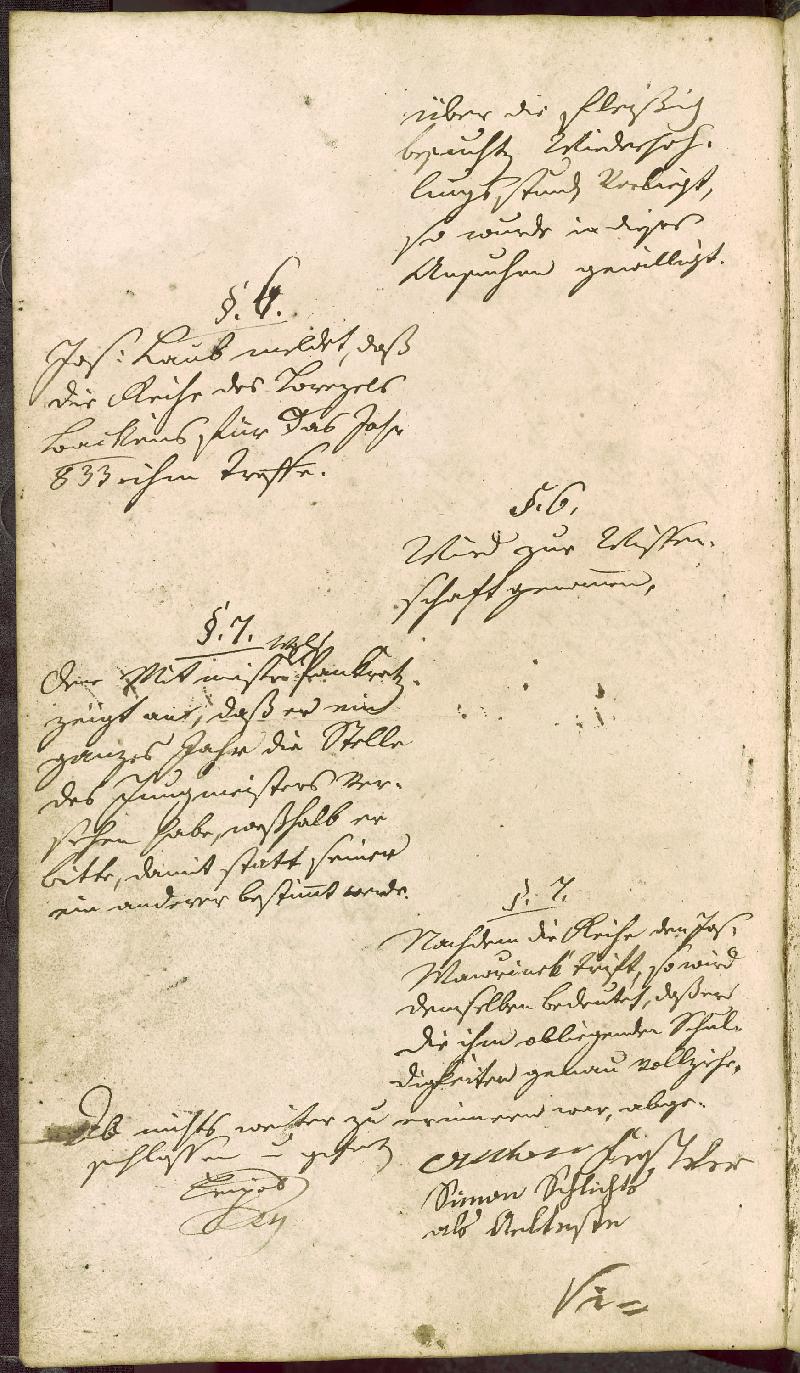 über die fleißig
besuchte Wiederhoh-
lungsstunde vorliegt,
so wurde in dieses
Ansuchen gewilliget.
§. 6.
Jos: Laub meldet, daß
die Reihe des
backens für das Jahr
833 ihm treffe.
§. 6.
Wird zur Wissen-
schaft genommen,
§. 7.
Der Mitmeister Pankratz
zeigt an, daß er ein
ganzes Jahr die Stelle
des Jungmeisters ver-
sehen habe, weßhalb er
bitte, damit statt seiner
ein anderer bestimmt werde.
§. 7.
Nachdem die Reihe den Jos:
Mawrinek trift, so wird
demselben bedeutet, daß er
die ihm obliegenden Schul-
digkeiten genau vollziehe,
Ob nichts weiter zu erinnern war, abge-
schlossen
Anton
Simon Schlichts
als Aelteste
Vi=